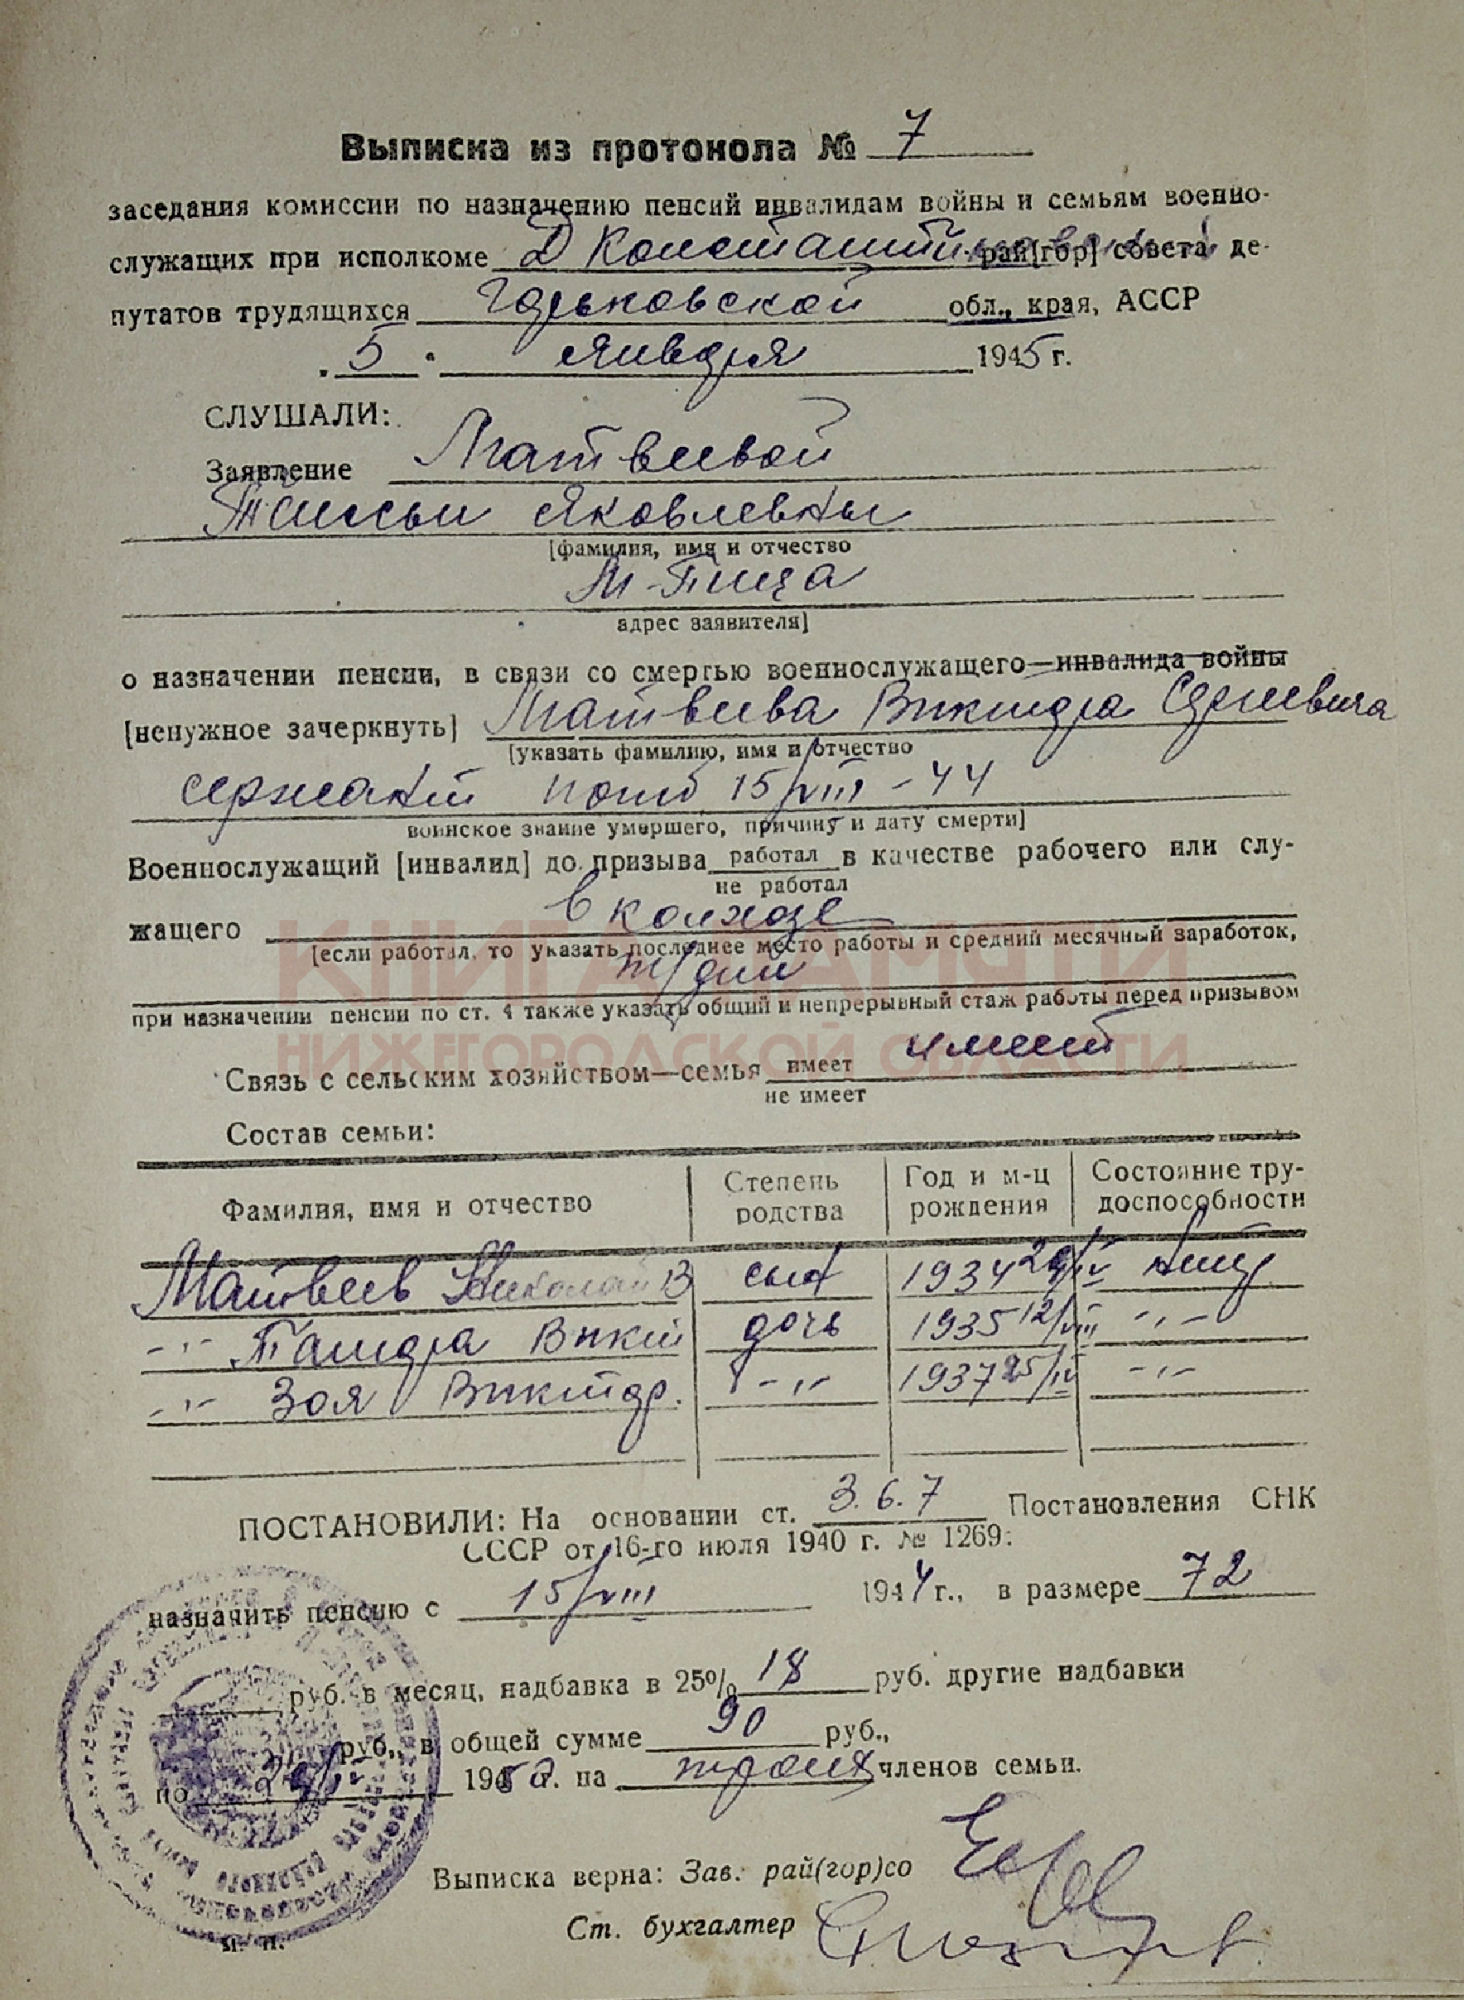 Выписка из протокола № 7
заседания комиссии по назначению пенсий инвалидам войны и семьям военно-
служащих при исполкоме Д Константиновском рай[гор] совета де-
путатов трудящихся Горьковской обл., края, АССР
"5" января 1945 г.
СЛУШАЛИ:
Заявление Матвеевой
Таисьи Яковлевны
[фамилия, имя и отчество
М-Пица
адрес заявителя]
о назначении пенсии, в связи со смертью военнослужащего—инвалида войны
[ненужное зачеркнуть] Матвеева Виктора Сергеевича
[указать фамилию, имя и отчество
сержант погиб 15/VIII-44
воинское звание умершего, причину и дату смерти]
Военнослужащий [инвалид] до призыва работал в качестве рабочего или слу-
не работал
жащего в колхозе
[если работал, то указать последнее место работы и средний месячный заработок,
т/дни
при назначении пенсии по ст. 4 также указать общий и непрерывный стаж работы перед призывом
КНИГА ПАМЯТИ
НИЖЕГОРОДСКОЙ ОБЛАСТИ
Связь с сельским хозяйством—семья имеет имеет
не имеет
Состав семьи:
Фамилия, имя и отчество Степень родства Год и м-ц рождения Состояние тру-доспособности
Матвеев Николай В сын 1934 29/IV
-"- Тамара Викт дочь 1935 12/VIII -"-
-"- Зоя Виктор. -"- 1937 25/IV -"-
ПОСТАНОВИЛИ: На основании ст. 3.6.7 Постановления СНК
СССР от 16-го июля 1940 г. № 1269:
назначить пенсию с 15/VIII 1944 г., в размере 72
руб. в месяц, надбавка в 25% 18 руб. другие надбавки
руб., в общей сумме 90 руб.,
по 29/IV 1950 г. на троих членов семьи.
Выписка верна: Зав. рай(гор)со
Ст. бухгалтер
М. П.